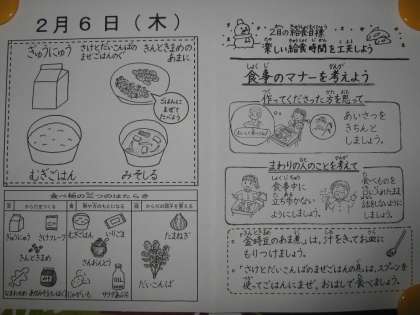 2月6日(木)
ぎゅうにゅう
さけとだいこんばの
まぜごはんのぐ
きんときまめの
あまに
ごはんに
まぜて
たべよう
むぎごはん
みそしる
食べ物の三つのはたらき
ぎゅうにゅう
さけフレーク
きんときまめ
いりごま
さんおんとう
じゃがいも
サラダあぶら
たまねぎ
だいこんば
2月の給食目標
楽しい給食時間を工夫しよう
食事のマナーを考えよう
作ってくださった方を思って
あいさつを
きちんと
しましょう。
まわりの人のことを考えて
食事中に
立ち歩かない
ようにしましょう。
食べものを
口に入れたまま
話さないように
しましょう。
「金時豆のあま煮」は、汁をきってお皿に
もりつけましょう。
「さけとだいこんばのまぜごはんの具」は、スプーンを
使ってごはんにまぜ、おはしで食べましょう。